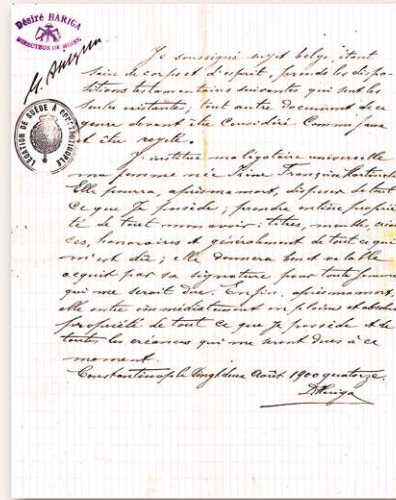 Désiré HARIGA
DIRECTEUR DE MINES
LÉGATION DE SUÈDE À CONSTANTINOPLE
Je soussigné sujet belge, étant
sain de corps et d'esprit, prends les dispo-
sitions testamentaires suivantes qui sont les
seules existantes; tout autre document de ce
genre devant être considéré comme faux
et être rejeté.
J'institue ma légataire universelle
ma femme née
Elle pourra, après ma mort, disposer de tout
ce que je possède; prendre entière proprié-
té de tout mon avoir: titres, meubles, créan-
ces, honoraires et généralement de tout ce qui
m'est dû; elle donnera bon et valable
acquit par sa signature pour toute somme
qui me serait due. Enfin, après ma mort,
elle entre immédiatement en pleine et absolue
propriété de tout ce que je possède et de
toutes les créances qui me seront dues à ce
moment.
Constantinople Août 1900 quatorze.
DHariga